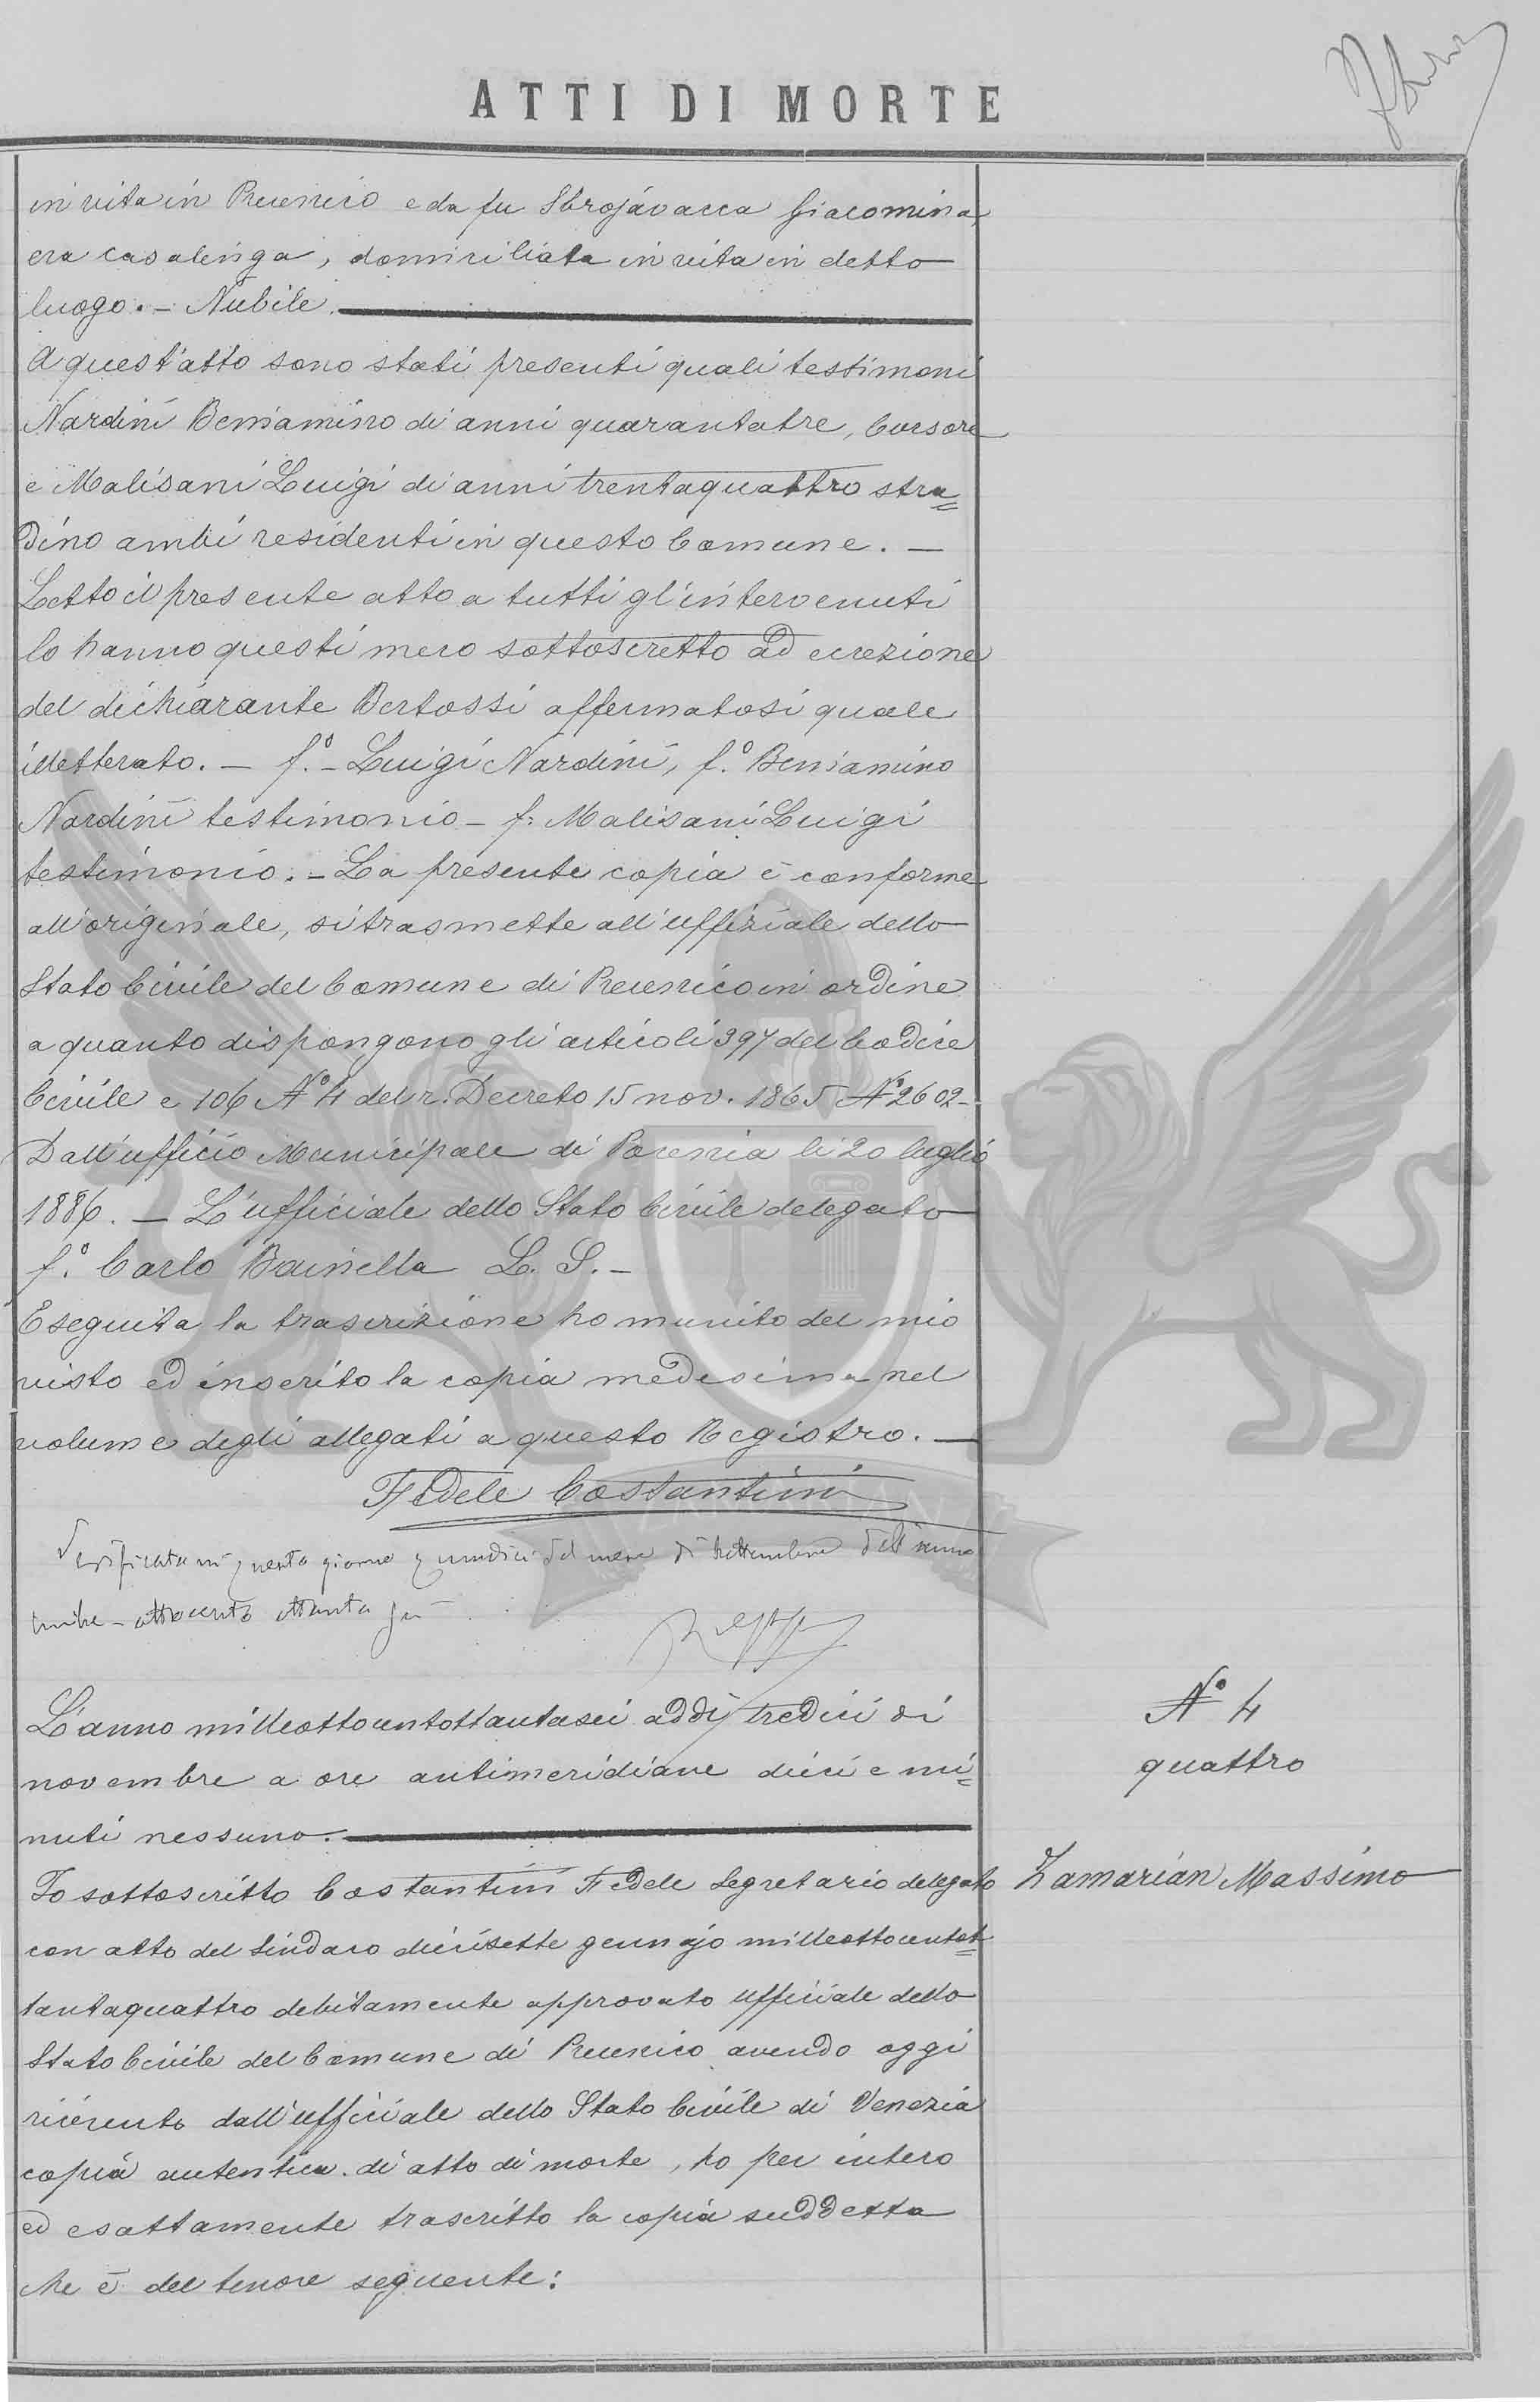 ATTI DI MORTE
in vita in Precenico e da fu Sbrojavacca Giacomina,
era casalinga, domiciliata in vita in detto
luogo. – Nubile.
A quest'atto sono stati presenti quali testimoni
Nardini Beniamino di anni quarantatre, Cursore
e Malisani Luigi di anni trentaquattro stra=
dino ambi residenti in questo Comune. —
Letto il presente atto a tutti gl'intervenuti
lo hanno questi meco sottoscritto ad eccezione
del dichiarante Bertossi affermatosi quale
illetterato. — f.º – Luigi Nardini, f.º Beniamino
Nardini testimonio – f: Malisani Luigi
testimonio. – La presente copia è conforme
all'originale, si trasmette all'uffiziale dello
Stato Civile del Comune di Precenico in ordine
a quanto dispongono gli articoli 397 del Codice
Civile e 106 Nº 4 del r. Decreto 15 nov. 1865 Nº 2602 –
Dall'ufficio Municipale di Pocenia li 20 luglio
1886. — L'ufficiale dello Stato Civile delegato
f.º Carlo L. S. –
Eseguita la trascrizione ho munito del mio
visto ed inserito la copia medesima nel
volume degli allegati a questo Registro. —
Fedele Costantini
Verificata in questo giorno quindici del mese di Settembre dell'anno
mille – ottocento ottanta sei
L'anno milleottocentottantasei addì tredici di
novembre a ore antimeridiane dieci e mi=
nuti nessuno.
Io sottoscritto Costantini Fedele Segretario delegato
con atto del Sindaco diecisette gennajo milleottocentot=
tantaquattro debitamente approvato ufficiale dello
Stato Civile del Comune di Precenico avendo oggi
ricevuto dall'ufficiale dello Stato Civile di Venezia
copia autentica di atto di morte, ho per intero
ed esattamente trascritto la copia suddetta
che è del tenore seguente:
Nº 4
quattro
Zamarian Massimo